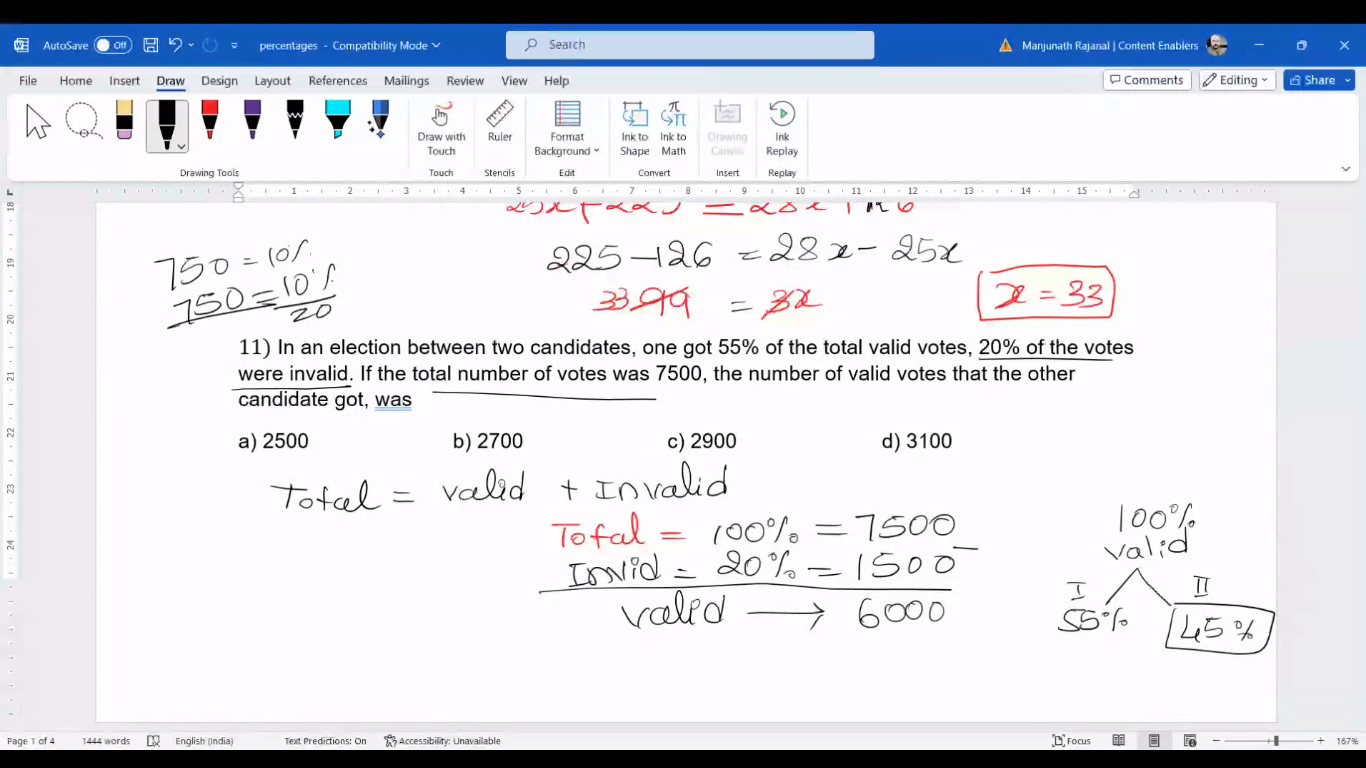 AutoSave Off percentages - Compatibility Mode Search Manjunath Rajanal | Content Enablers
File Home Insert Draw Design Layout References Mailings Review View Help Comments Editing Share
Draw with Touch
Ruler
Format Background
Ink to Shape
Ink to Math
Drawing Canvas
Ink Replay
Drawing Tools Touch Stencils Edit Convert Insert Replay
1 2 3 4 5 6 7 8 9 10 11 12 13 14 15
18
19
20
21
22
23
24
750 = 10%
750 = 10%
20
225 - 126 = 28x - 25x
33 99 = 3x
x = 33
11) In an election between two candidates, one got 55% of the total valid votes, 20% of the votes
were invalid. If the total number of votes was 7500, the number of valid votes that the other
candidate got, was
a) 2500 b) 2700 c) 2900 d) 3100
Total = valid + Invalid
Total = 100% = 7500
Invid = 20% = 1500
valid → 6000
100%
valid
I II
55% 45%
Page 1 of 4 1444 words English (India) Text Predictions: On Accessibility: Unavailable Focus 167%